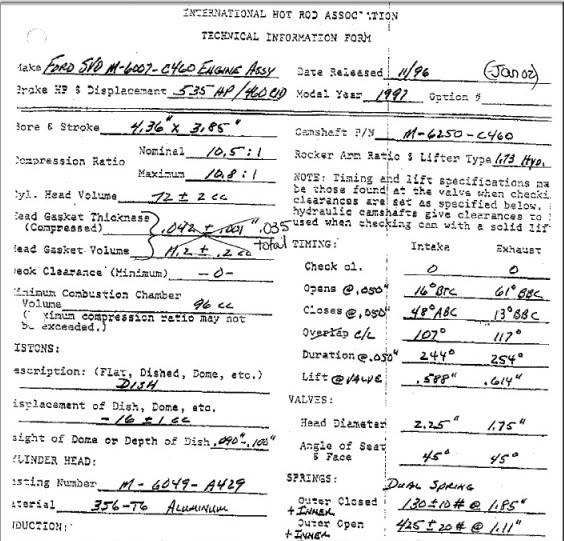 INTERNATIONAL HOT ROD ASSOCIATION
TECHNICAL INFORMATION FORM
Make FORD SVO M-6007-C460 ENGINE ASSY
Date Released 11/96 (Jan 02)
Brake HP & Displacement 535 HP/460 CID
Model Year 1997 Option #
Bore & Stroke 4.36" X 3.85"
Compression Ratio
Nominal 10.5:1
Maximum 10.8:1
Cyl. Head Volume 72 ± 2 cc
Head Gasket Thickness
(Compressed) .042 ± .001" .035
total
Head Gasket Volume 11.2 ± .2 cc
Deck Clearance (Minimum) -0-
Minimum Combustion Chamber
Volume 96 cc
( maximum compression ratio may not
be exceeded.)
PISTONS:
Description: (Flat, Dished, Dome, etc.)
DISH
Displacement of Dish, Dome, etc.
-16 ± 1 cc
Height of Dome or Depth of Dish .090"-.100"
CYLINDER HEAD:
Casting Number M-6049-A429
Material 356-T6 ALUMINUM
INDUCTION:
Camshaft P/N M-6250-C460
Rocker Arm Ratio & Lifter Type 1.73 HYD.
NOTE: Timing and lift specifications ma
be those found at the valve when checki
clearances are set as specified below.
hydraulic camshafts give clearances to
used when checking cam with a solid lif
TIMING: Intake Exhaust
Check cl. 0 0
Opens @.050" 16° BTC 61° BBC
Closes @.050" 48° ABC 13° BBC
Overlap C/L 107° 117°
Duration @.050" 244° 254°
Lift @VALVE .588" .614"
VALVES:
Head Diameter 2.25" 1.75"
Angle of Seat
& Face 45° 45°
SPRINGS: DUAL SPRING
Outer Closed 130±10# @ 1.85"
+ INNER
Outer Open 425±20# @ 1.11"
+ INNER